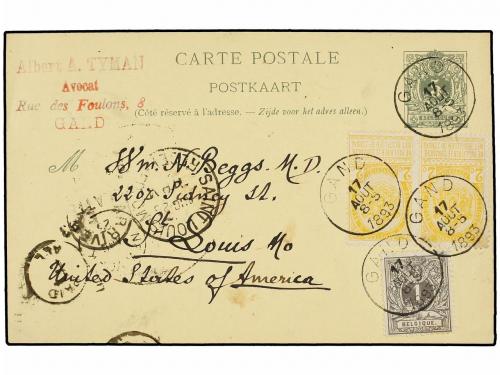 Albert A. TYMAN
Avocat
Rue des Foulons, 8
GAND
CARTE POSTALE
POSTKAART
(Côté réservé à l'adresse. — Zijde voor het adres alleen.)
M Wm. N. Beggs. M.D.
Sidney St.
St. Louis Mo
United States of America.
GAND
17
AOUT
GAND
17
AOUT
8-S
1893
GAND
17
AOUT
8-S
1893
GAND
17
1893
2
2
1
BELGIQUE
SAINT LOUIS